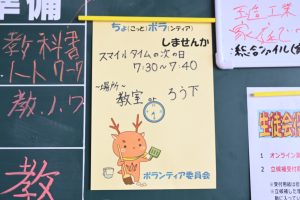 準備
教科書
ノート ワーク
教.ノ.ワ
教
ちょ(こっと)ボラ(ンティア)
しませんか
スマイルタイムの次の日
7:30～7:40
～場所～
教室 or ろう下
ボランティア委員会
総合ファイル
生徒会
1 オンライン
2 立候補受付